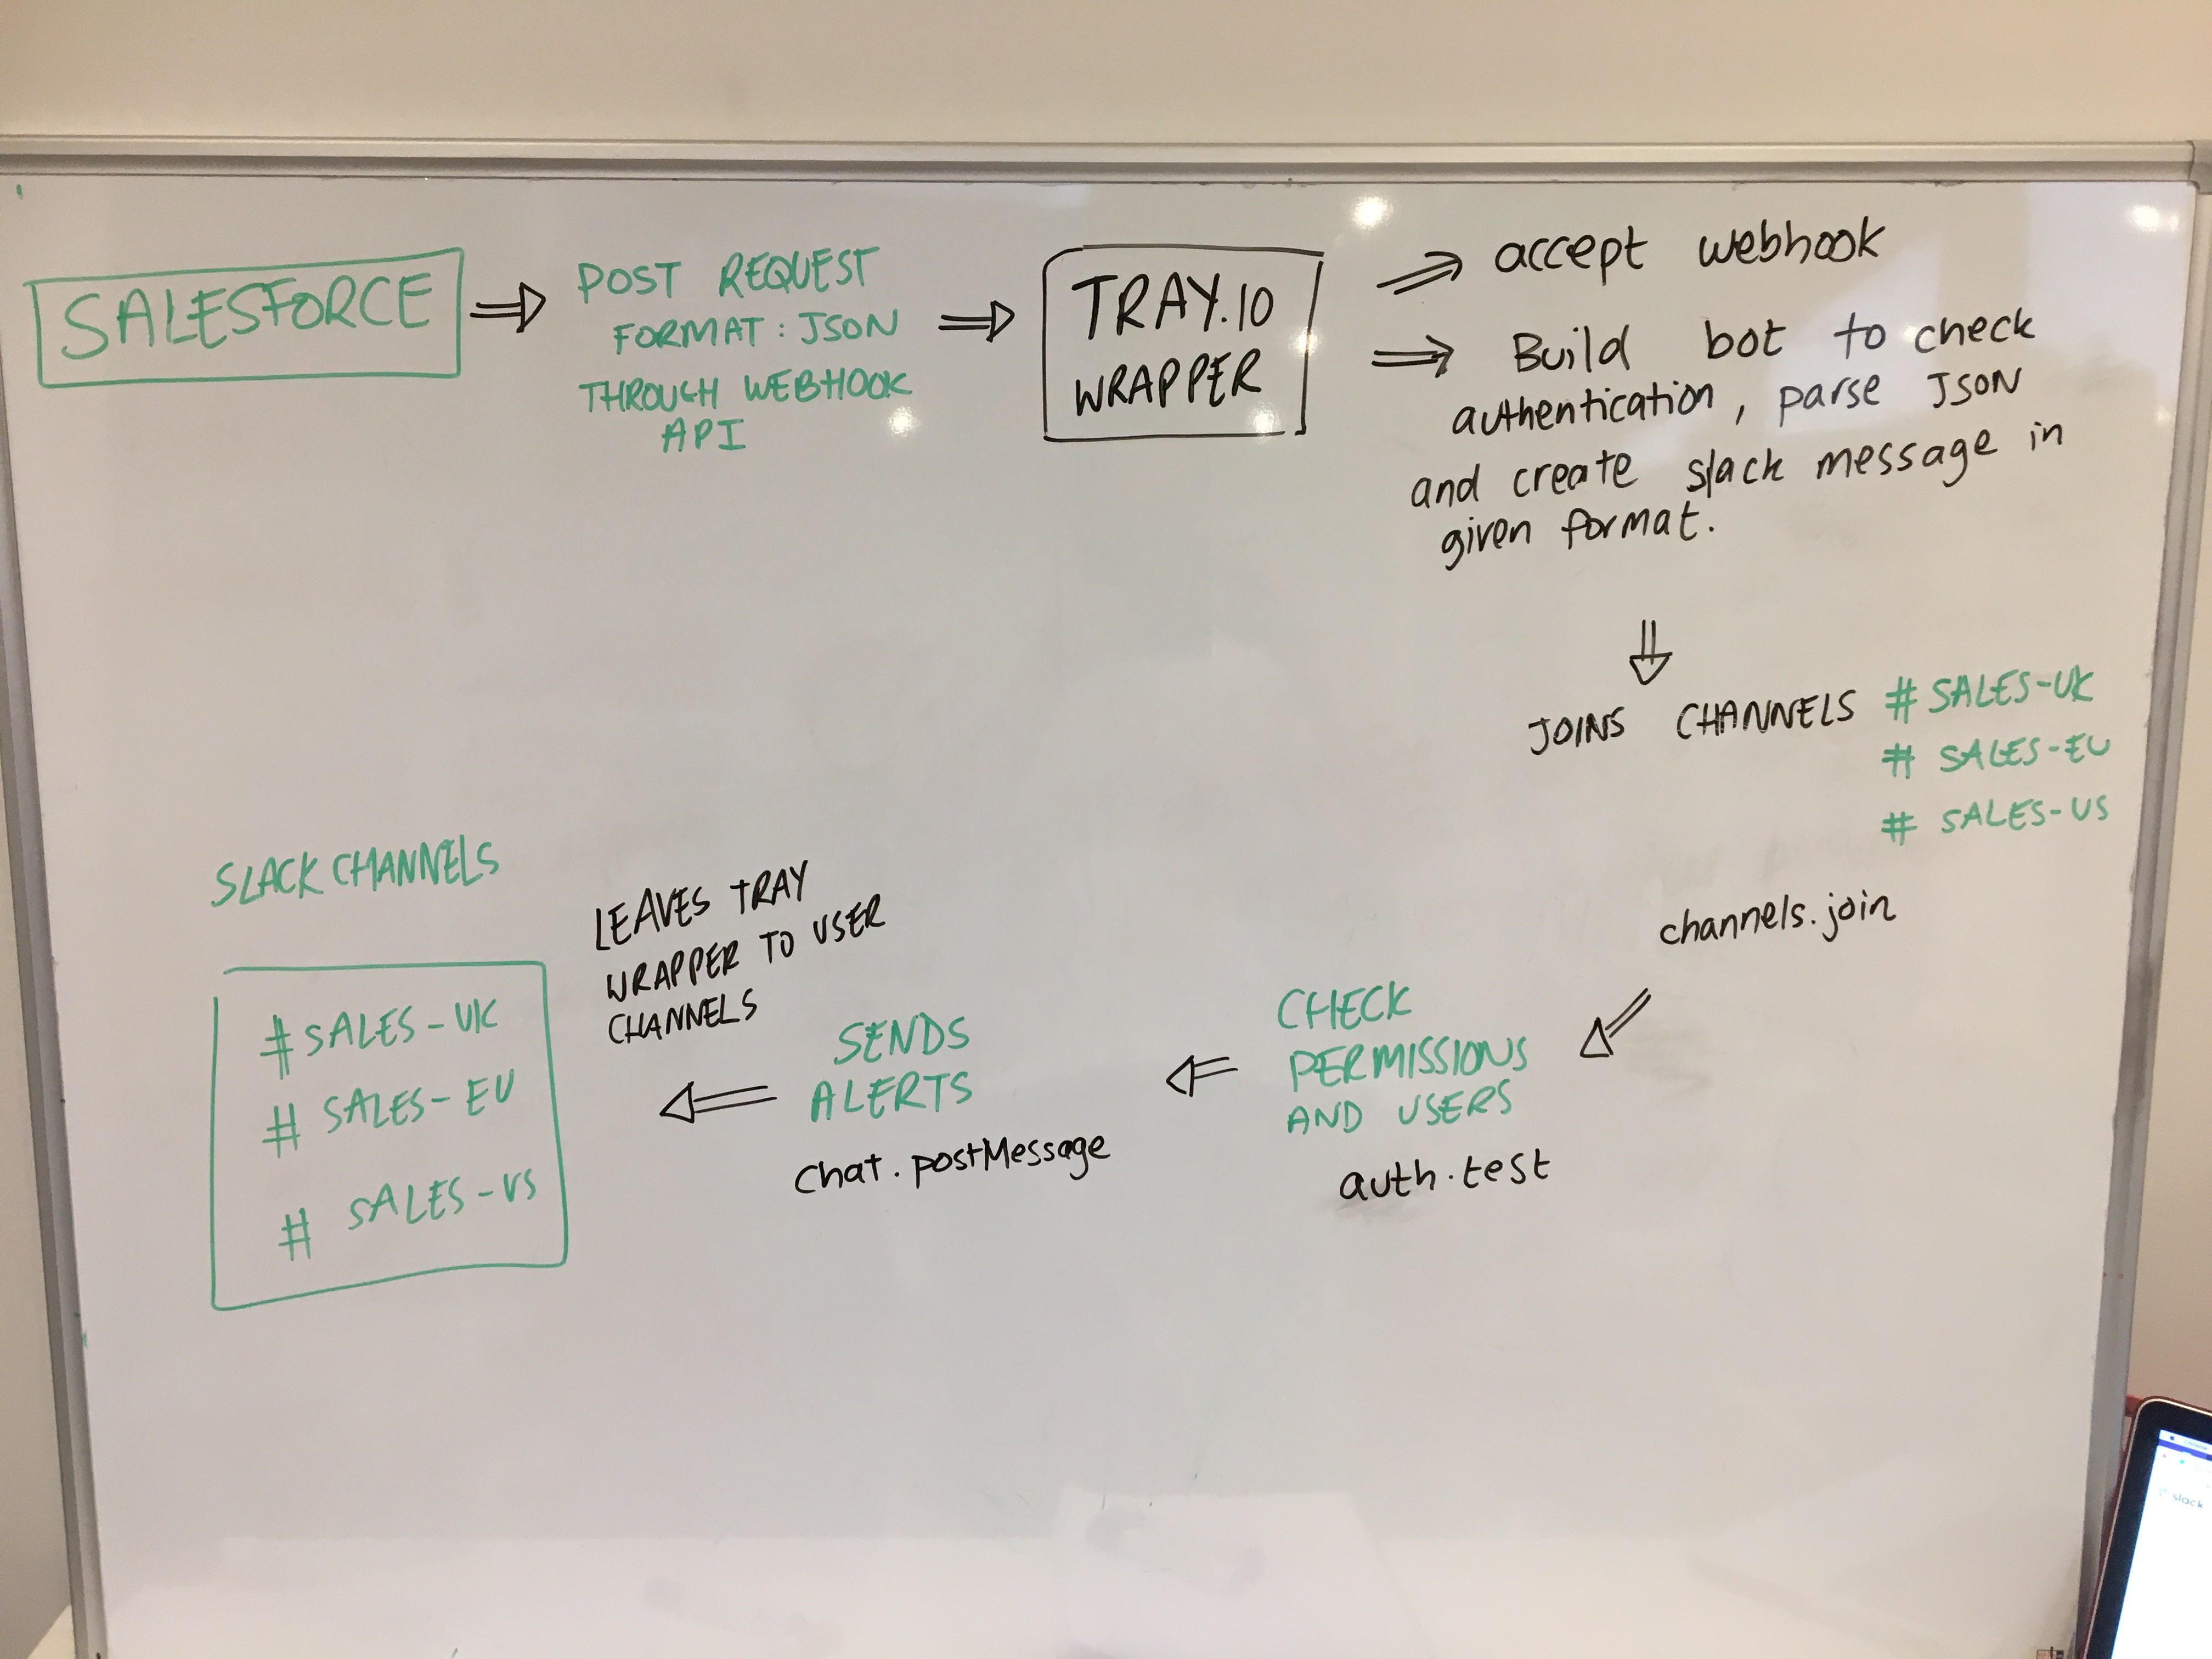 SALESFORCE
POST REQUEST
FORMAT : JSON
THROUGH WEBHOOK
API
TRAY.IO
WRAPPER
accept webhook
Build bot to check
authentication, parse JSON
and create slack message in
given format.
JOINS CHANNELS # SALES-UK
# SALES-EU
# SALES-US
channels.join
CHECK
PERMISSIONS
AND USERS
auth.test
SENDS
ALERTS
chat.postMessage
LEAVES TRAY
WRAPPER TO USER
CHANNELS
SLACK CHANNELS
# SALES-UK
# SALES-EU
# SALES-US
slack